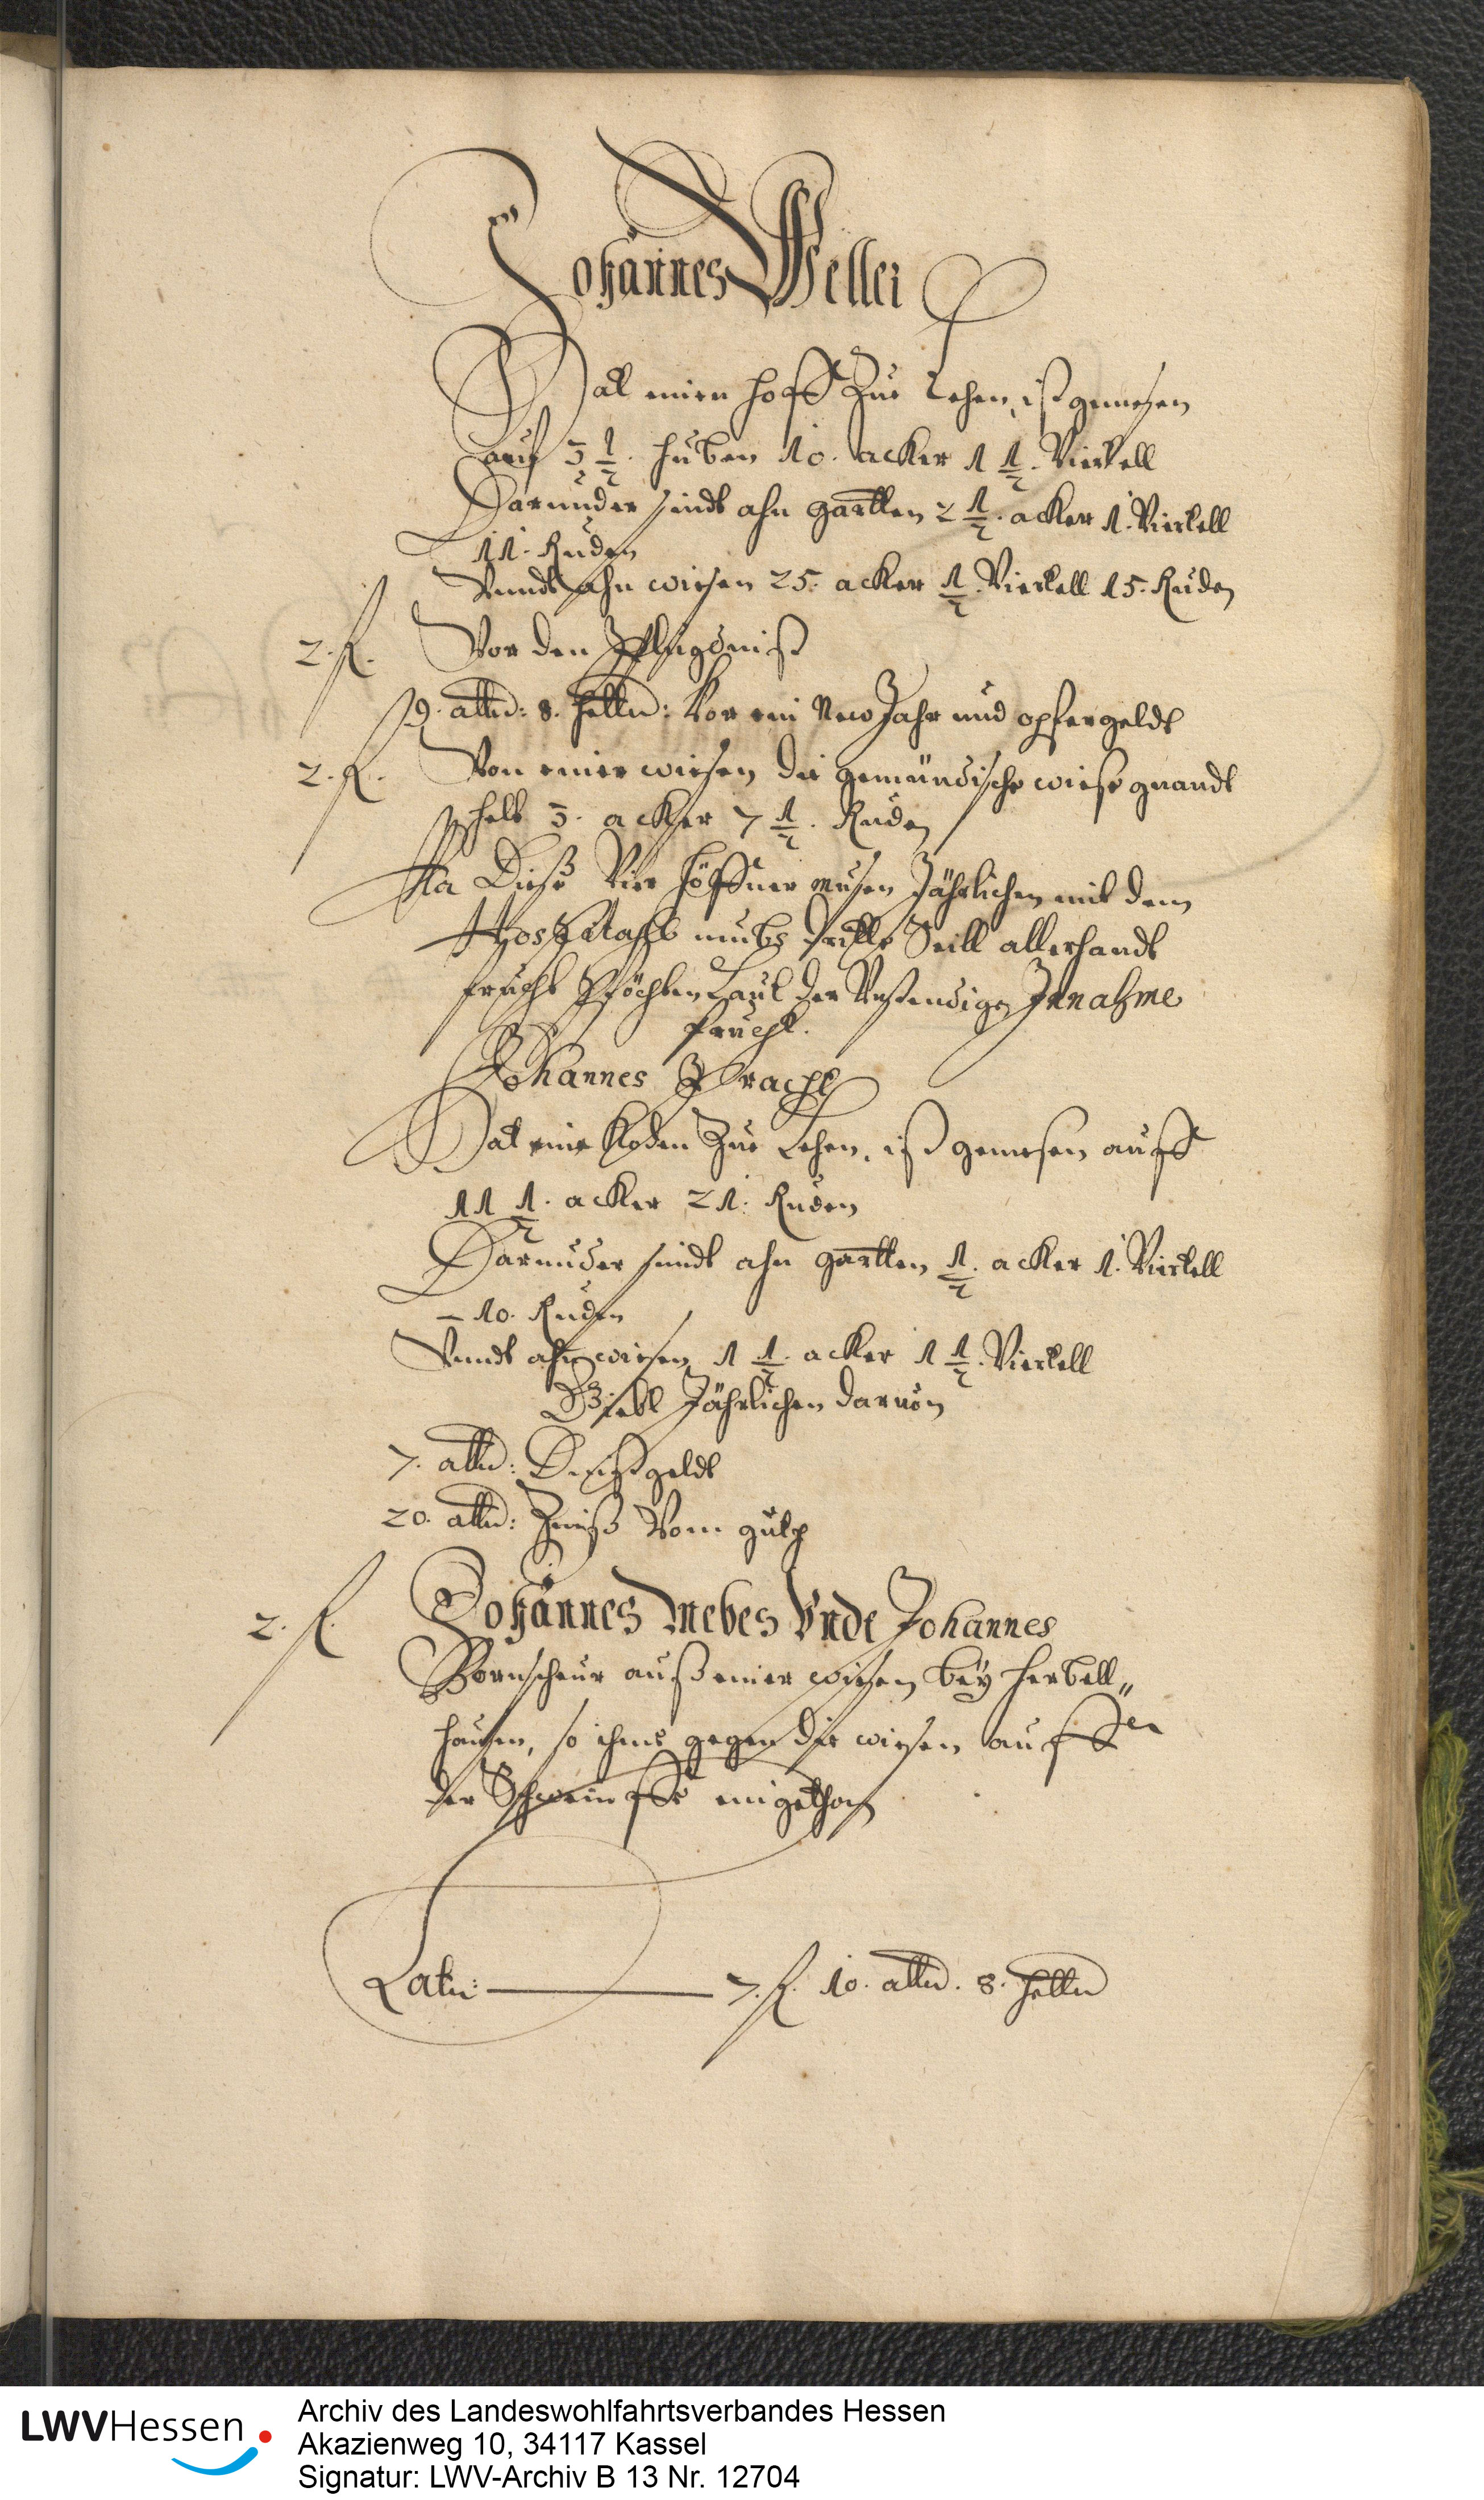 Johannes Weller
Hat einen Hoff Zue Lehen, ist gemesen
auf 3 1/2. huben 10. acker 1 1/2. Viertell
Darunder seindt ahn gartten 2 1/2. acker 1. Viertell
11. Ruden
Vnndt ahn wiesen 25. acker 1/2. Viertell 15. Ruden
2. fl. Vor den Pflugdinst
9. albus: 8. heller: Vor ein New Jahr und opfergeldt
2. fl. Von einer wiesen die gemündische wiese gnandt
helt 3. acker 7 1/2. Ruden
Na Diese Vier höffner musen Jährlichen mit dem
Hospitahl umbs dritte Teill allerhandt
frucht Laut der Innahme
frucht.
Johannes Bracht
Hat eine Koden Zue Lehen, ist gemesen auff
11 1/2. acker 21. Ruden
Darunder seindt ahn gartten 1/2. acker 1. Viertell
10. Ruden
Vnndt ahn wiesen 1 1/2. acker 1 1/2. Viertell
Giebt Jährlichen daruon
7. albus: Dinstgeldt
20. albus: Zinß Vom
2. fl. Johannes Mebes Vnde Johannes
Bornscheur auß einer wiesen bey Herbell„
hausen, so ihme gegen die wiesen auff
der eingethon
Latus: 7. fl. 10. albus. 8. heller
LWVHessen
Archiv des Landeswohlfahrtsverbandes Hessen
Akazienweg 10, 34117 Kassel
Signatur: LWV-Archiv B 13 Nr. 12704